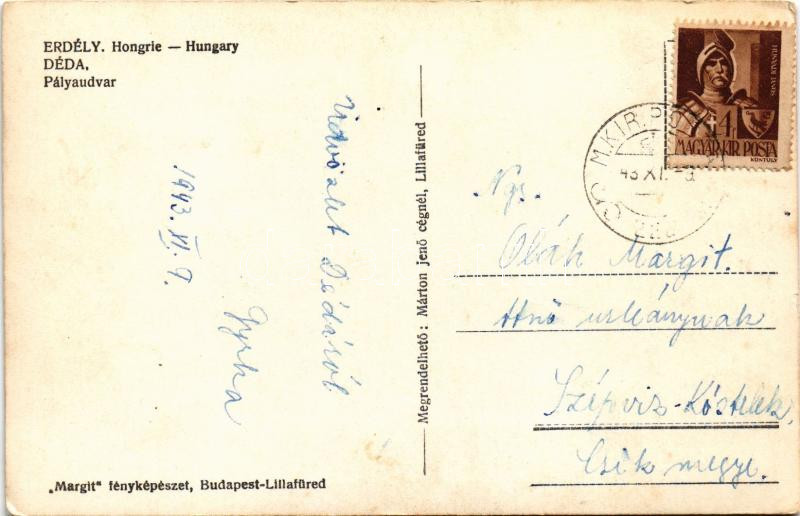 ERDÉLY. Hongrie — Hungary
DÉDA,
Pályaudvar
Üdvözlet Dédáról
1943. XI. 9.
"Margit" fényképészet, Budapest-Lillafüred
Megrendelhető: Márton jenő cégnél, Lillafüred
HUNYADI JÁNOS
4f
MAGYAR KIR. POSTA
KONTULY
M. KIR. PO
43 XI.
Ngs.
Oláh Margit.
urleánynak
Szépviz-Kóstelek,
Csik megye.